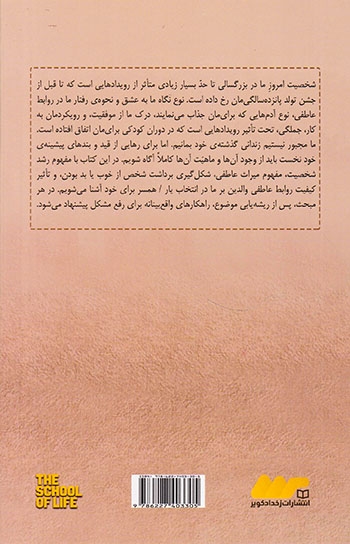 شخصیت امروز ما در بزرگسالی تا حدّ بسیار زیادی متأثر از رویدادهایی است که تا قبل از
جشن تولد پانزده‌سالگی‌مان رخ داده است. نوع نگاه ما به عشق و نحوه‌ی رفتار ما در روابط
عاطفی، نوع آدم‌هایی که برای‌مان جذاب می‌نمایند، درک ما از موفقیت، و رویکردمان به
کار، جملگی، تحت تأثیر رویدادهایی است که در دوران کودکی برای‌مان اتفاق افتاده است.
ما مجبور نیستیم زندانی گذشته‌ی خود بمانیم. اما برای رهایی از قید و بندهای پیشینه‌ی
خود نخست باید از وجود آن‌ها و ماهیّت آن‌ها کاملاً آگاه شویم. در این کتاب با مفهوم رشد
شخصیت، مفهوم میراث عاطفی، شکل‌گیری برداشت شخص از خوب یا بد بودن، و تأثیر
کیفیت روابط عاطفی والدین بر ما در انتخاب یار / همسر برای خود آشنا می‌شویم. در هر
مبحث، پس از ریشه‌یابی موضوع، راهکارهای واقع‌بینانه برای رفع مشکل پیشنهاد می‌شود.
THE
SCHOOL
OF LIFE
9 786227 403305
انتشارات رخدادکویر